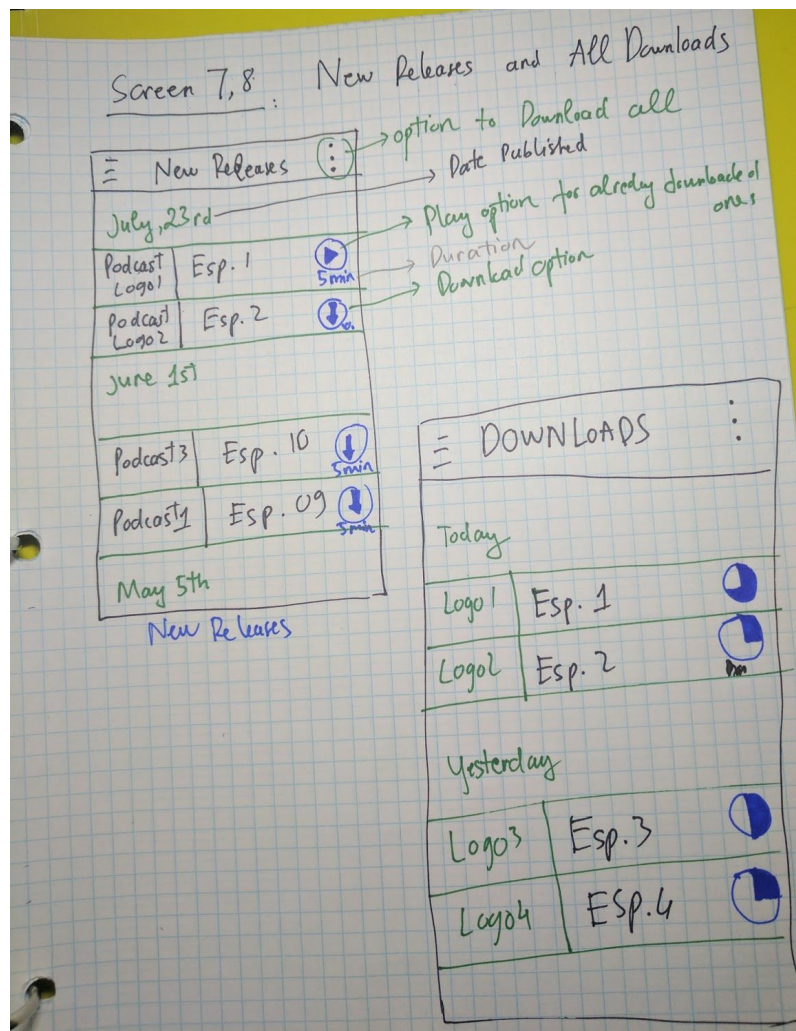 Screen 7,8: New Releases and All Downloads
New Releases
option to Download all
Date Published
July, 23rd
Play option for alredy downloaded ones
Podcast Logo1
Esp. 1
5min
Duration
Download option
Podcast Logo2
Esp. 2
June 1st
Podcast3
Esp. 10
5min
Podcast1
Esp. 09
5min
May 5th
New Releases
DOWNLOADS
Today
Logo1
Esp. 1
Logo2
Esp. 2
Yesterday
Logo3
Esp.3
Logo4
ESP.4